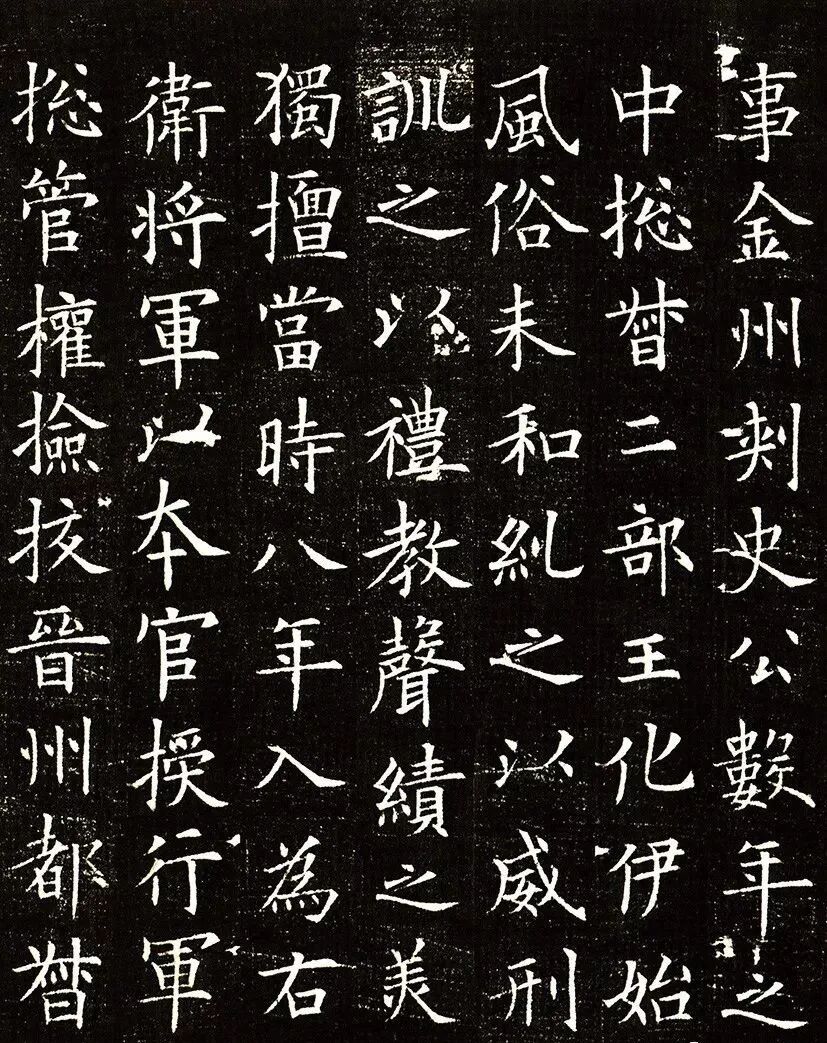 事金州刾史公數年之
中捴督二部王化伊始
風俗未和糺之以威刑
訓之以禮教聲績之美
獨擅當時八年入為右
衛将軍以本官授行軍
捴管權撿挍晉州都督